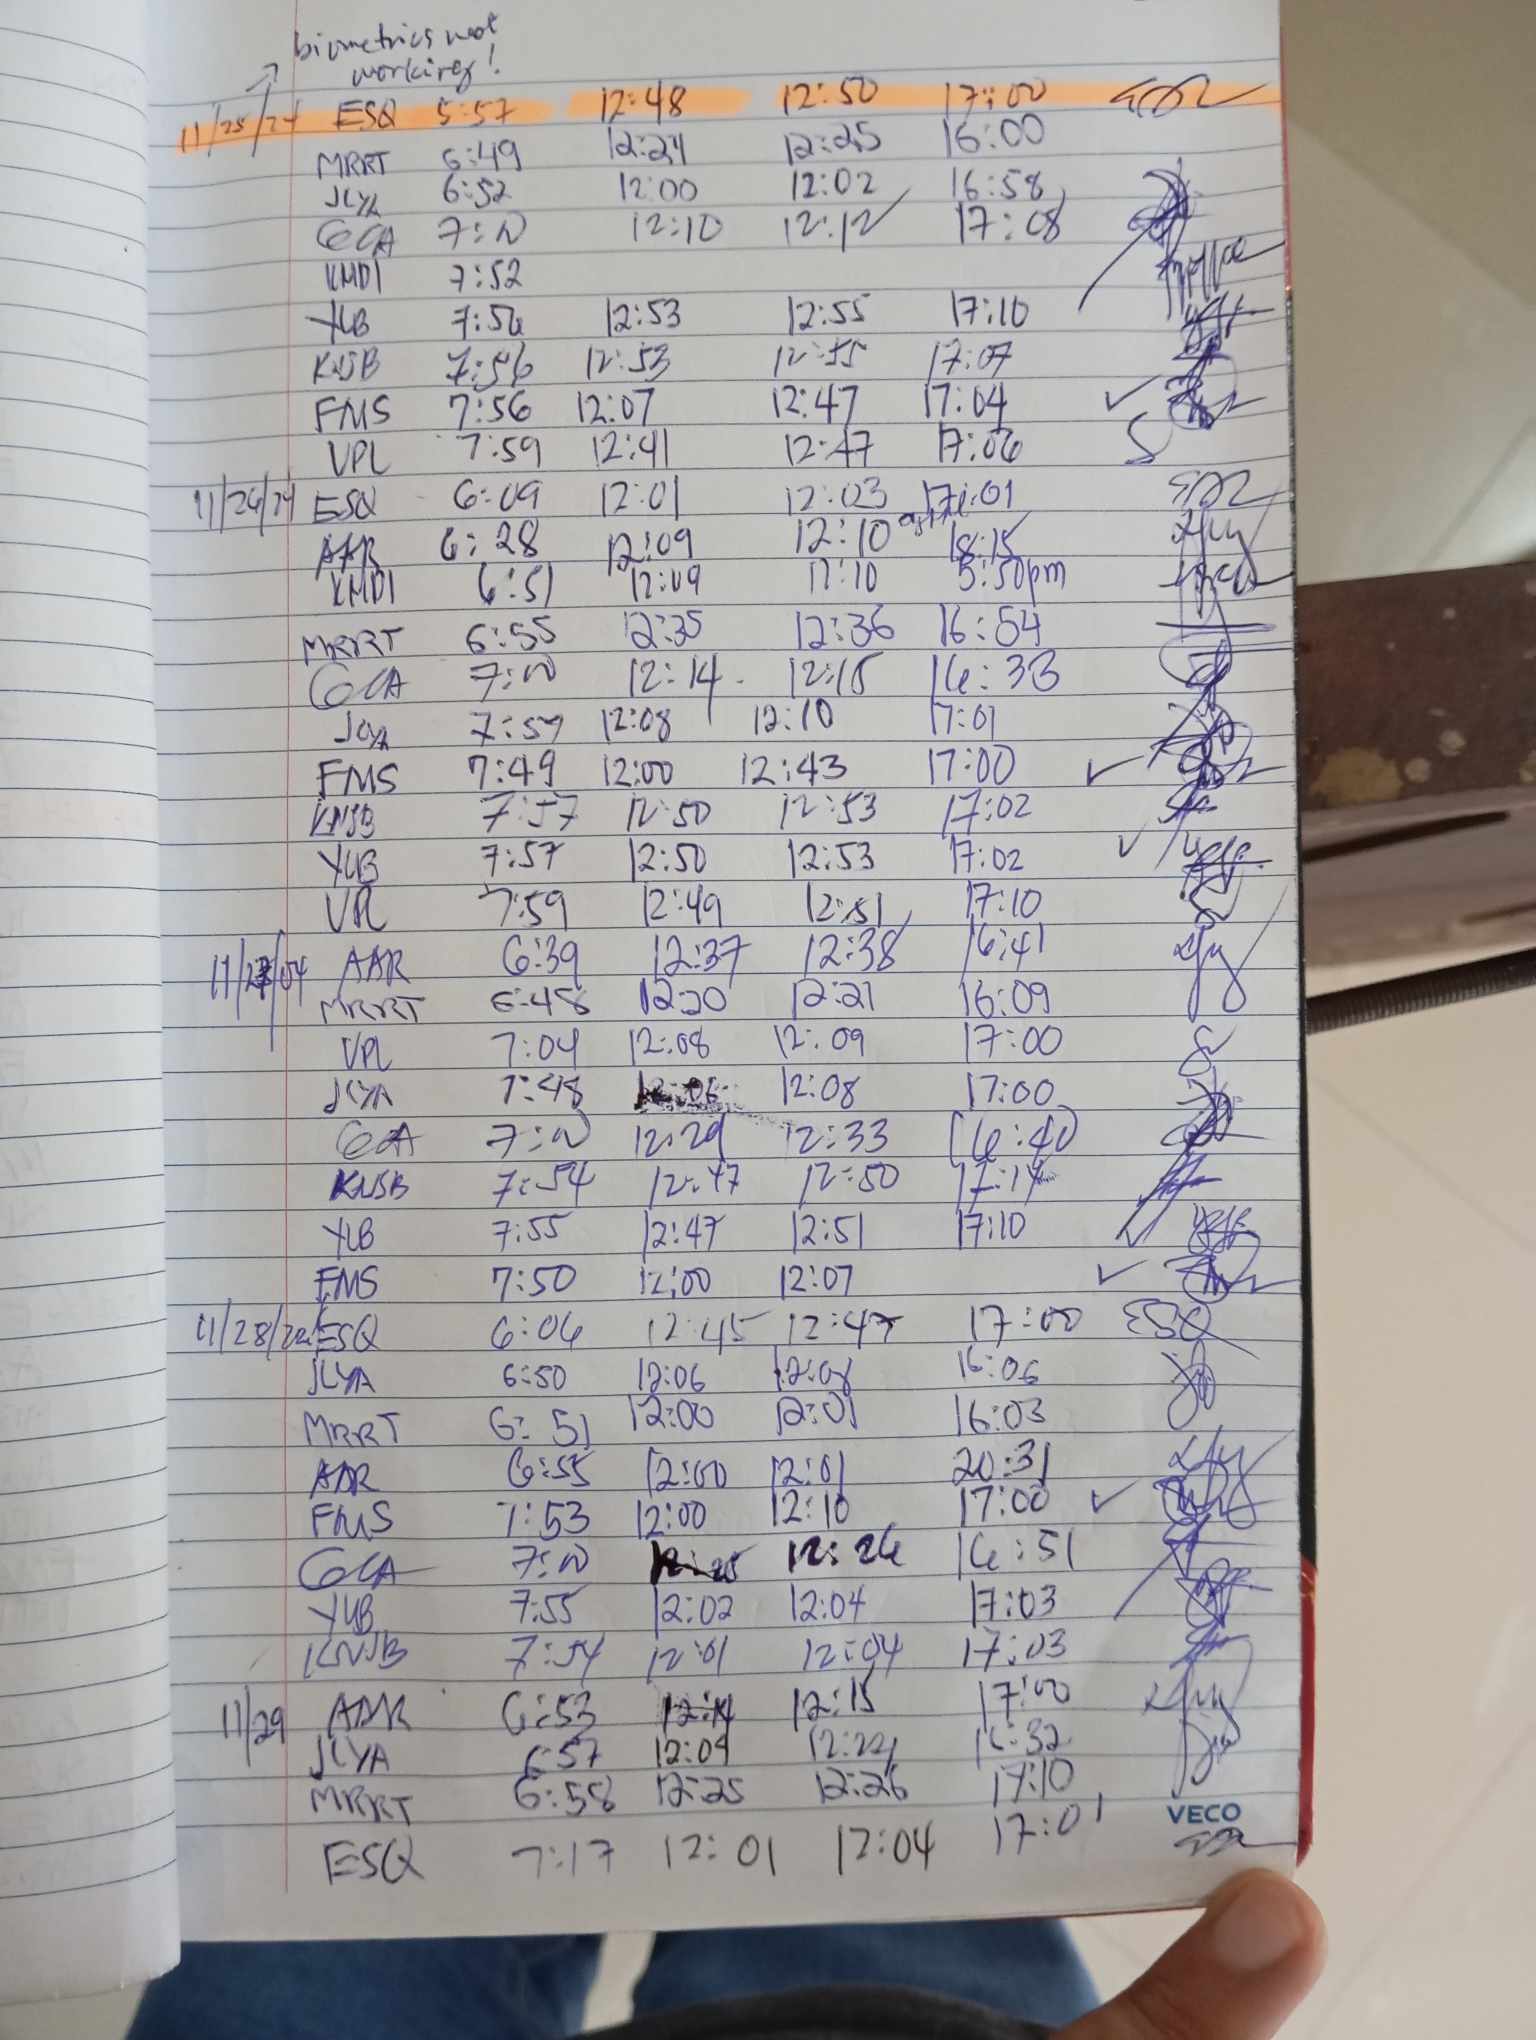 biometrics not
working!
11/25/24 ESQ 5:57 12:48 12:50 17:00
MRRT 6:49 12:24 12:25 16:00
JLYA 6:52 12:00 12:02 16:58
GCA 7:00 12:10 12:12 17:08
KMDI 7:52
YLB 7:56 12:53 12:55 17:10
KNJB 7:56 12:53 12:55 17:07
FMS 7:56 12:07 12:47 17:04 ✓
VPL 7:59 12:41 12:47 17:06
11/26/24 ESQ 6:09 12:01 12:03 17:01
AAR 6:28 12:09 12:10 18:15
KMDI 6:51 12:09 12:10 5:50pm
MRRT 6:55 12:35 12:36 16:54
GCA 7:00 12:14 12:15 16:33
JLYA 12:08 12:10 17:01
FMS 7:49 12:00 12:43 17:00 ✓
KNJB 7:57 12:50 12:53 17:02
YLB 7:57 12:50 12:53 17:02 ✓
VPL 7:59 12:49 12:51 17:10
AAR 6:39 12:37 12:38 16:41
MRRT 6:48 12:20 12:21 16:09
VPL 7:04 12:08 12:09 17:00
JLYA 7:48 12:06 12:08 17:00
GCA 7:00 12:29 12:33 16:40
KNJB 7:54 12:47 12:50 17:14
YLB 7:55 12:47 12:51 17:10
FMS 7:50 12:00 12:07 ✓
11/28/24 ESQ 6:06 12:45 12:47 17:00 ESQ
JLYA 6:50 12:06 12:08 16:06
MRRT 6:51 12:00 12:01 16:03
AAR 6:55 12:00 12:01 20:31
FMS 7:53 12:00 12:10 17:00 ✓
GCA 7:00 12:25 12:26 16:51
YLB 7:55 12:02 12:04 17:03
KNJB 7:54 12:01 12:04 17:03
11/29 AAR 6:53 12:14 12:15 17:00
JLYA 6:57 12:09 12:22 16:32
MRRT 6:58 12:25 12:26 17:10
VECO
ESQ 7:17 12:01 12:04 17:01